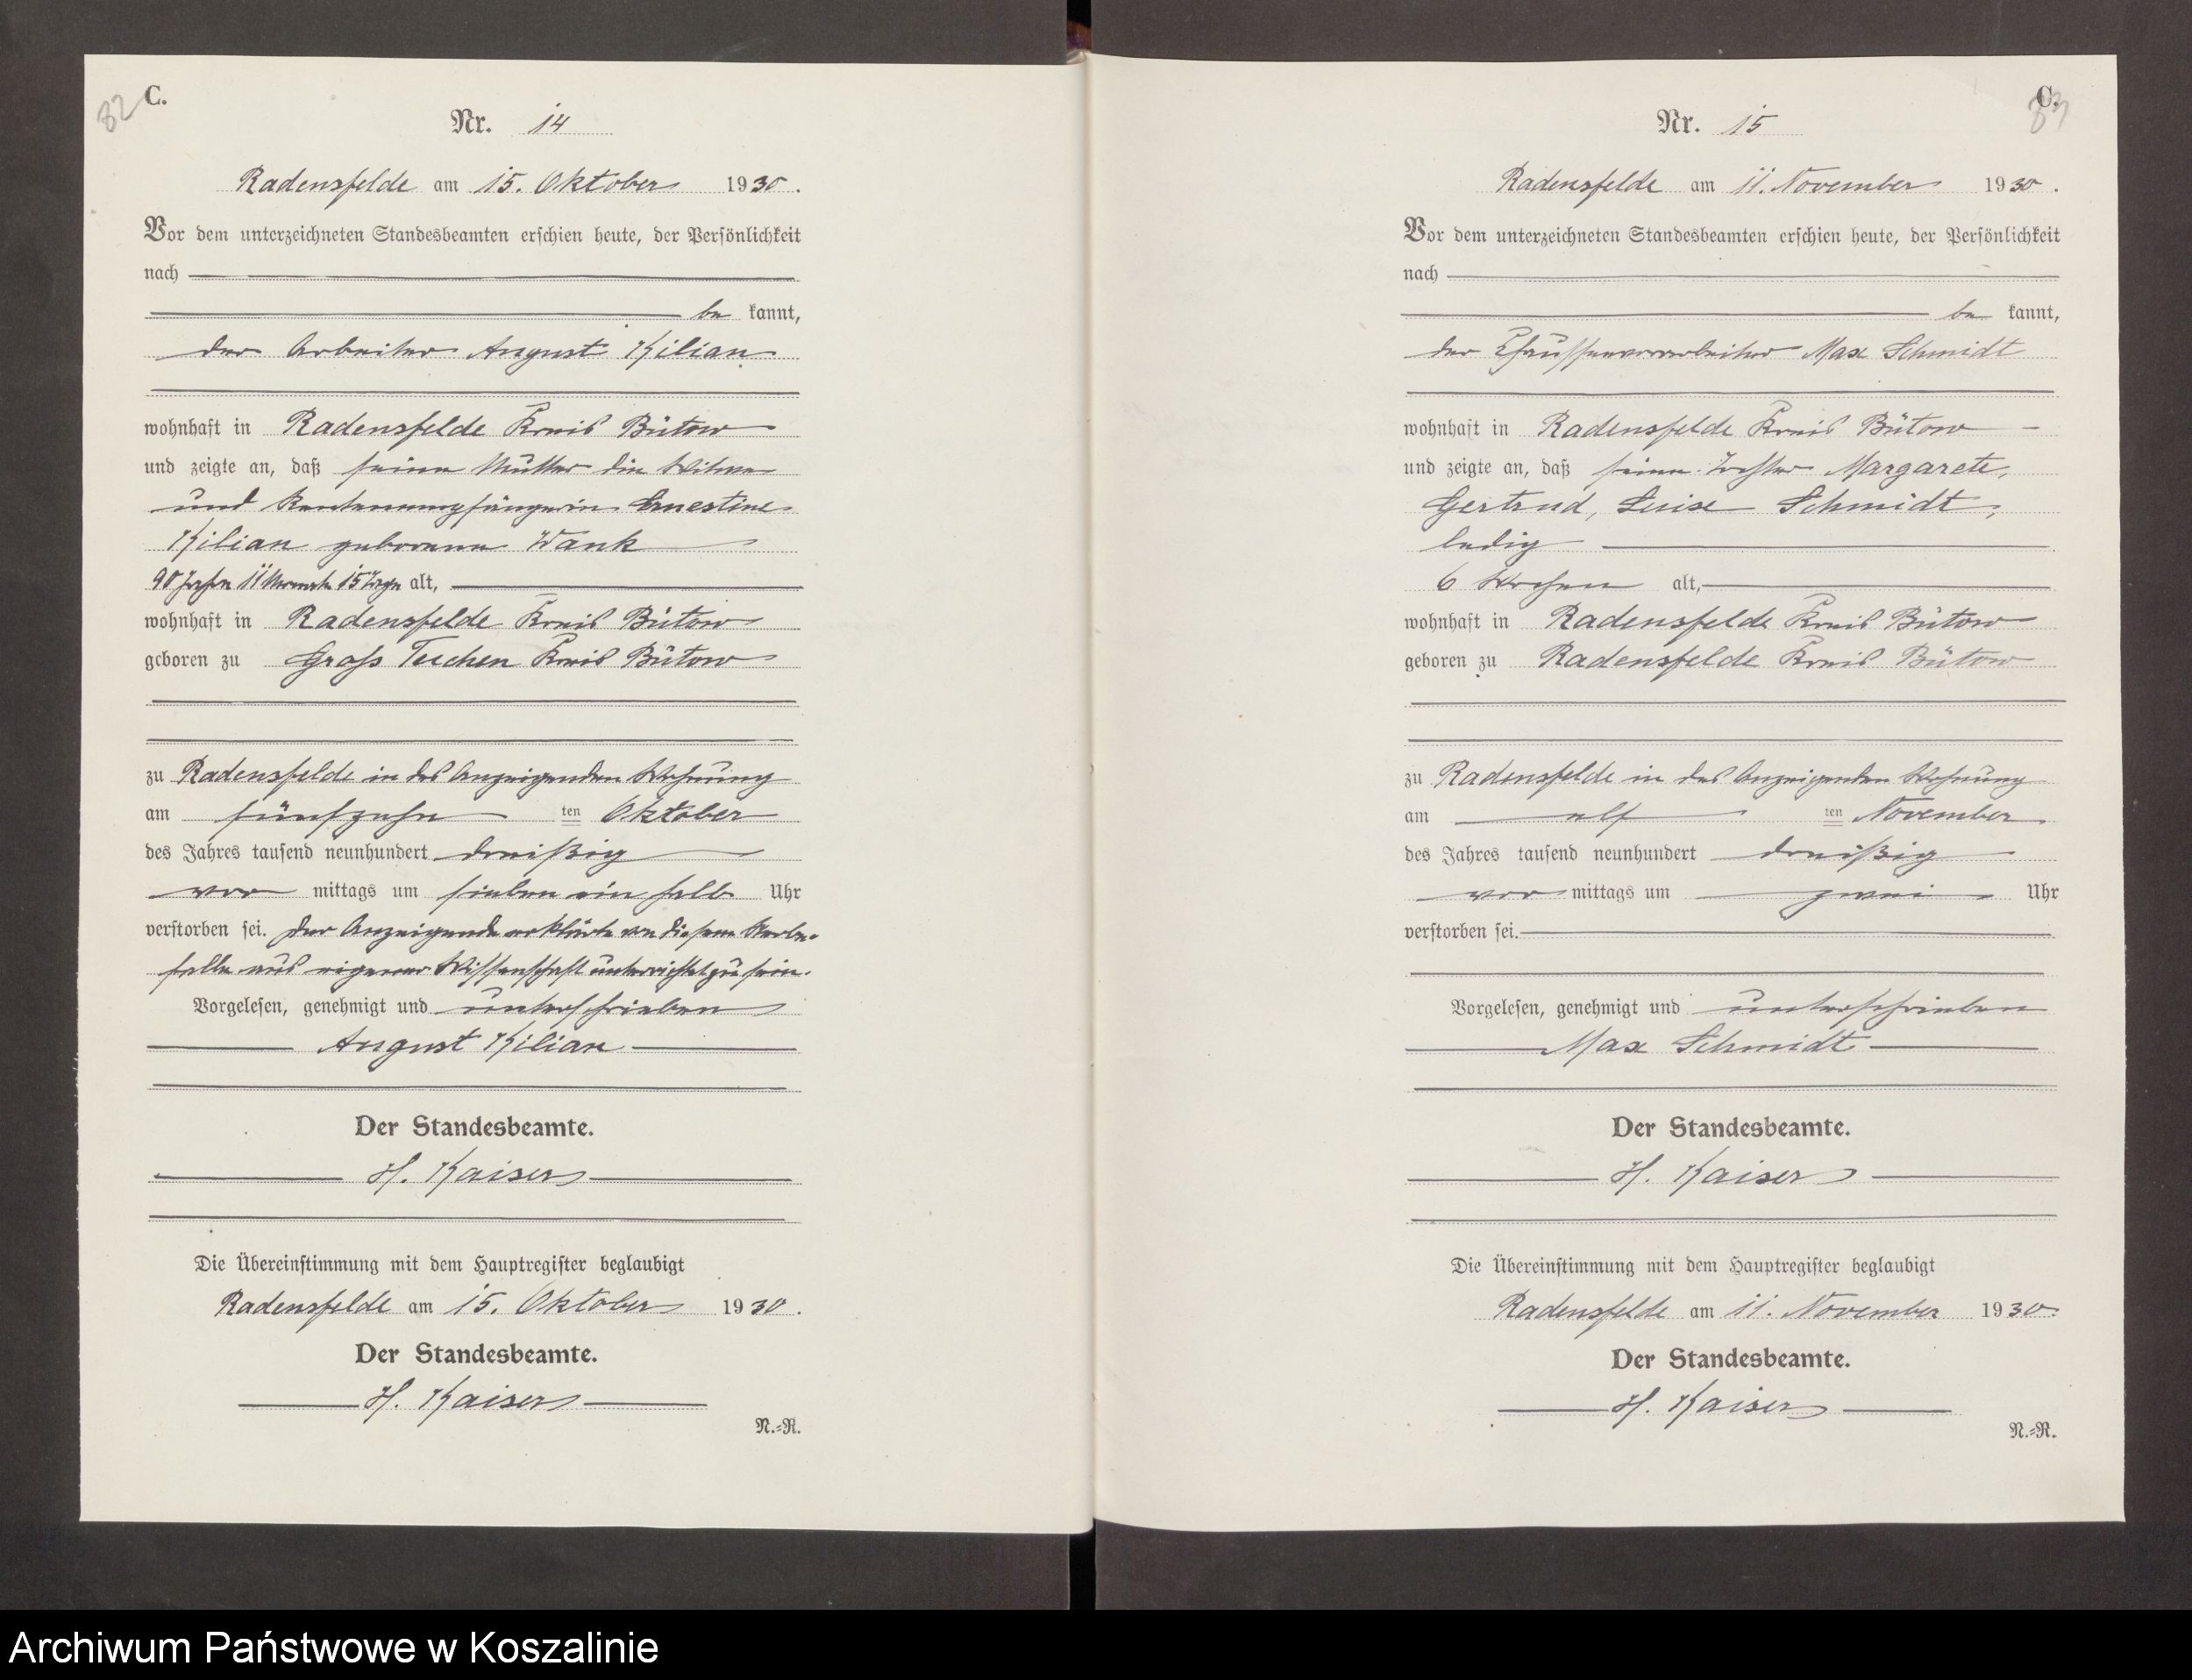 82
C.
Nr. 14
Radensfelde am 15. Oktober 1930.
Vor dem unterzeichneten Standesbeamten erschien heute, der Persönlichkeit
nach
be kannt,
der Arbeiter August Kilian
wohnhaft in Radensfelde Kreis Bütow
und zeigte an, daß seine Mutter die Witwe
und Rentenempfängerin Ernestine
Kilian geborene Wank
90 Jahre 11 Monate 15 Tage alt,
wohnhaft in Radensfelde Kreis Bütow
geboren zu Gross Tuchen Kreis Bütow
zu Radensfelde in des Anzeigenden Wohnung
am fünfzehn ten Oktober
des Jahres tausend neunhundert dreißig
vor mittags um sieben ein halb Uhr
verstorben sei. Der Anzeigende erklärte von diesem Sterbe-
falle aus eigener Wissenschaft unterrichtet zu sein.
Vorgelesen, genehmigt und unterschrieben
August Kilian
Der Standesbeamte.
H. Kaiser
Die Übereinstimmung mit dem Hauptregister beglaubigt
Radensfelde am 15. Oktober 1930.
Der Standesbeamte.
H. Kaiser
N.-R.
C.
83
Nr. 15
Radensfelde am 11. November 1930.
Vor dem unterzeichneten Standesbeamten erschien heute, der Persönlichkeit
nach
be kannt,
der Chausseevorarbeiter Max Schmidt
wohnhaft in Radensfelde Kreis Bütow
und zeigte an, daß seine Tochter Margarete,
Gertrud, Luise Schmidt,
ledig
6 Wochen alt,
wohnhaft in Radensfelde Kreis Bütow
geboren zu Radensfelde Kreis Bütow
zu Radensfelde in des Anzeigenden Wohnung
am elf ten November
des Jahres tausend neunhundert dreißig
vor mittags um zwei Uhr
verstorben sei.
Vorgelesen, genehmigt und unterschrieben
Max Schmidt
Der Standesbeamte.
H. Kaiser
Die Übereinstimmung mit dem Hauptregister beglaubigt
Radensfelde am 11. November 1930.
Der Standesbeamte.
H. Kaiser
N.-R.
Archiwum Państwowe w Koszalinie